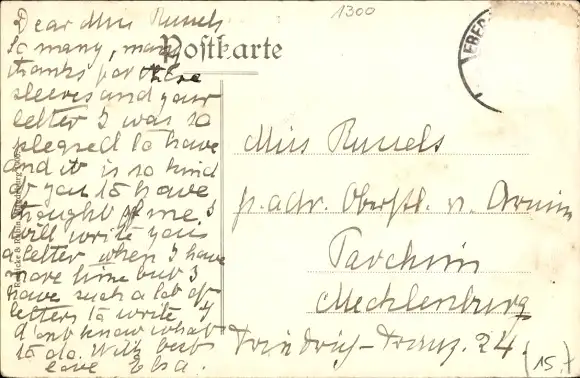 1300
Dear Miss Russels
So many, many
thanks for these
sleeves and your
letter I was so
pleased to have
and it is so kind
of you to have
thought of me, I
will write you
a letter when I have
more time but I
have such a lot of
letters to write I
d'ont know what
to do. With best
love Elsa.
Postkarte
Miss Russels
p. adr. Oberstl. v. Arnim
Parchim
Mecklenburg
Friedrich-Franz. 24.
(15.)